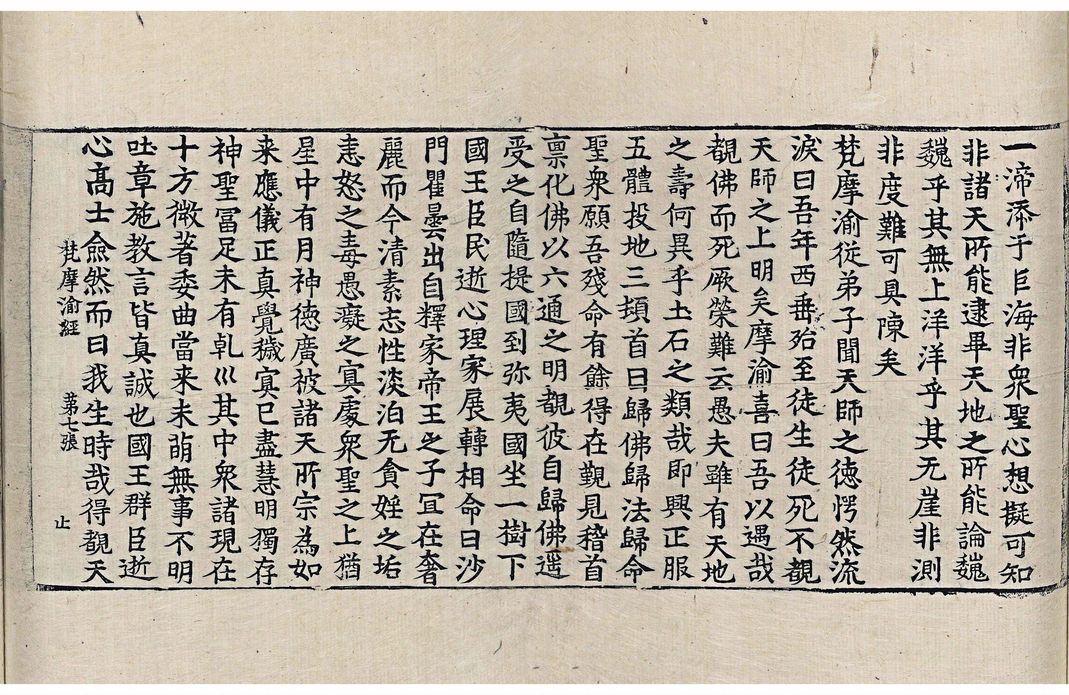 一渧添于巨海非衆聖心想擬可知
非諸天所能逮畢天地之所能論巍
巍乎其無上洋洋乎其无崖非測
非度難可具陳矣
梵摩渝従弟子聞天師之德愕然流
淚曰吾年西垂殆至徒生徒死不覩
天師之上明矣摩渝喜曰吾以遇哉
覩佛而死厥榮難云愚夫雖有天地
之壽何異乎土石之類哉即興正服
五體投地三頓首曰歸佛歸法歸命
聖衆願吾殘命有餘得在覲見稽首
禀化佛以六通之明覩彼自歸佛遥
受之自隨提國到弥夷國坐一樹下
國王臣民逝心理家展轉相命曰沙
門瞿曇出自釋家帝王之子冝在奢
麗而今清素志性淡泊无貪婬之垢
恚怒之毒愚癡之冥處衆聖之上猶
星中有月神德廣被諸天所宗為如
来應儀正真覺穢冥已盡慧明獨存
神聖冨足未有乹巛其中衆諸現在
十方微著委曲當来未萌無事不明
吐章施教言皆真誠也國王群臣逝
心髙士僉然而曰我生時哉得覩天
梵摩渝經 第七張 止